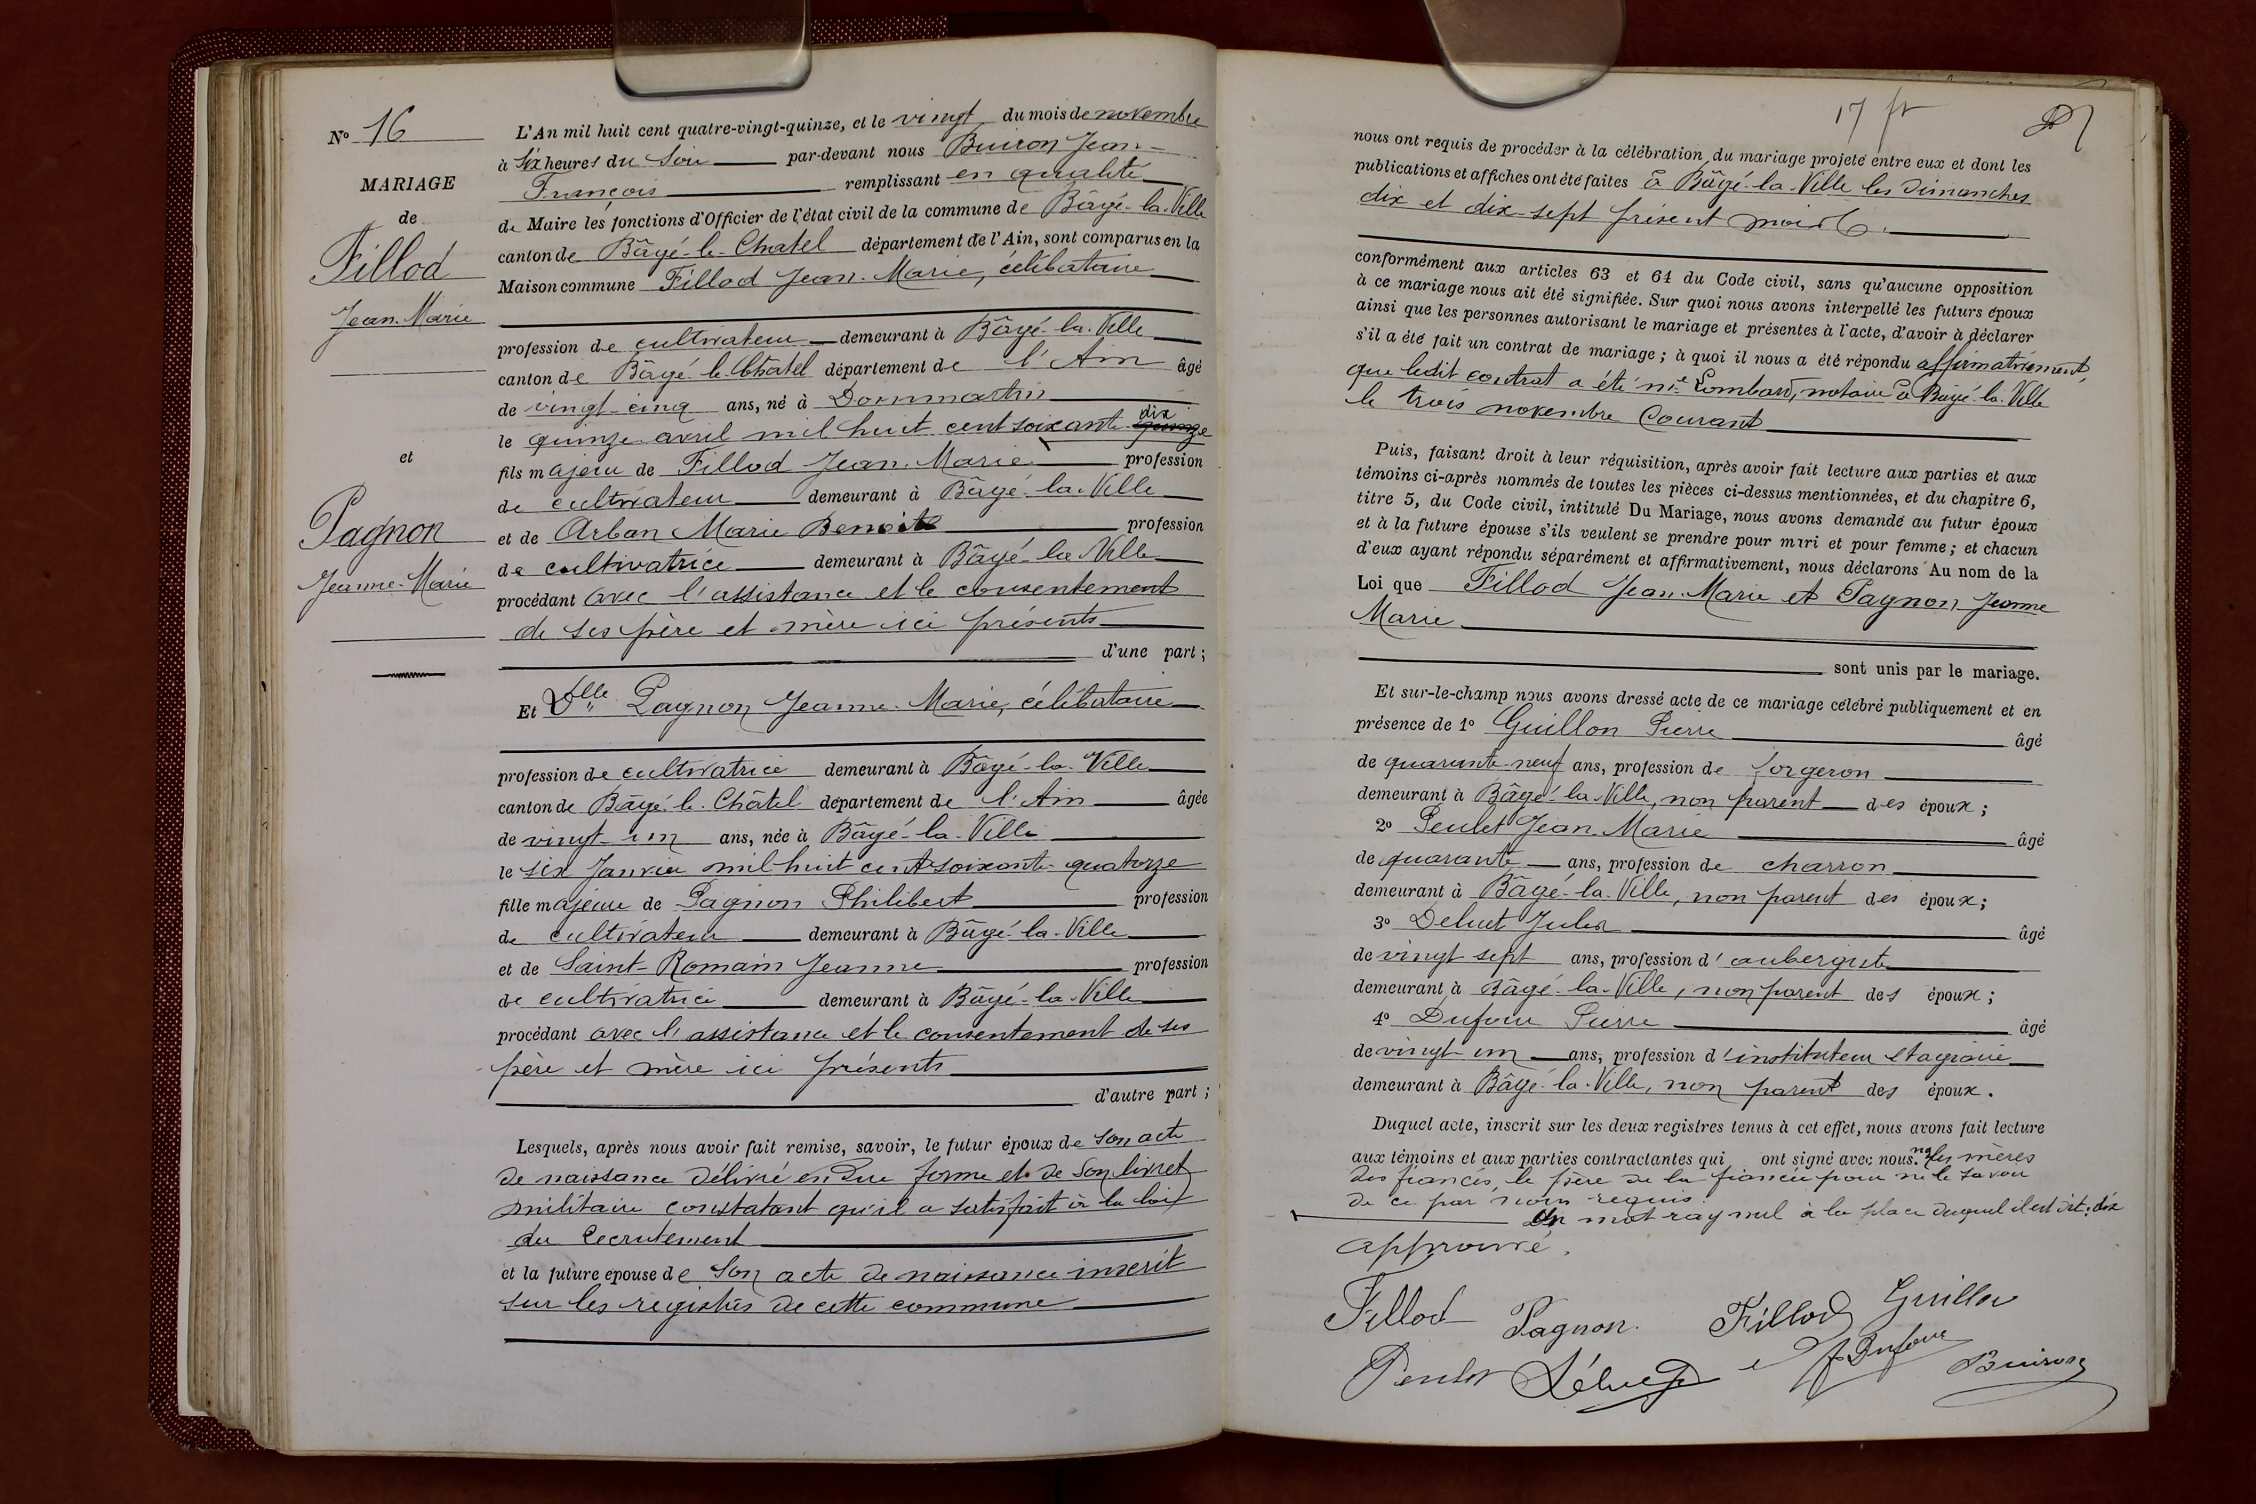 N° 16
MARIAGE
de
Fillod
Jean-Marie
et
Pagnon
Jeanne-Marie
L'An mil huit cent quatre-vingt-quinze, et le vingt du mois de novembre
à six heures du soir par-devant nous Buiron Jean-
François remplissant en qualité
de Maire les fonctions d'Officier de l'état civil de la commune de Bâgé-la-Ville
canton de Bâgé-le-Chatel département de l'Ain, sont comparus en la
Maison commune Fillod Jean-Marie, célibataire
profession de cultivateur demeurant à Bâgé-la-Ville
canton de Bâgé-le-Châtel département de l'Ain âgé
de vingt-cinq ans, né à Dommartin
le quinze avril mil huit cent soixante quinze dix
fils majeur de Fillod Jean-Marie profession
de cultivateur demeurant à Bâgé-la-Ville
et de Arban Marie Benoite profession
de cultivatrice demeurant à Bâgé-la-Ville
procédant avec l'assistance et le consentement
de ses père et mère ici présents
d'une part ;
Et Dlle Pagnon Jeanne-Marie, célibataire
profession de cultivatrice demeurant à Bâgé-la-Ville
canton de Bâgé-le-Châtel département de l'Ain âgée
de vingt-un ans, née à Bâgé-la-Ville
le six Janvier mil huit cent soixante-quatorze
fille majeure de Pagnon Philibert profession
de cultivateur demeurant à Bâgé-la-Ville
et de Saint-Romain Jeanne profession
de cultivatrice demeurant à Bâgé-la-Ville
procédant avec l'assistance et le consentement de ses
père et mère ici présents
d'autre part ;
Lesquels, après nous avoir fait remise, savoir, le futur époux de son acte
de naissance délivré en due forme et de son livret
militaire constatant qu'il a satisfait à la loi
du recrutement
et la future epouse de son acte de naissance inscrit
sur les registres de cette commune
17
nous ont requis de procéder à la célébration du mariage projeté entre eux et dont les
publications et affiches ont été faites à Bâgé-la-Ville les dimanches
dix et dix-sept présent mois
conformément aux articles 63 et 64 du Code civil, sans qu'aucune opposition
à ce mariage nous ait été signifiée. Sur quoi nous avons interpellé les futurs époux
ainsi que les personnes autorisant le mariage et présentes à l'acte, d'avoir à déclarer
s'il a été fait un contrat de mariage ; à quoi il nous a été répondu affirmativement,
que ledit contrat a été me Lombard, notaire à Bâgé-la-Ville
le trois novembre Courant
Puis, faisant droit à leur réquisition, après avoir fait lecture aux parties et aux
témoins ci-après nommés de toutes les pièces ci-dessus mentionnées, et du chapitre 6,
titre 5, du Code civil, intitulé Du Mariage, nous avons demandé au futur époux
et à la future épouse s'ils veulent se prendre pour mari et pour femme ; et chacun
d'eux ayant répondu séparément et affirmativement, nous déclarons Au nom de la
Loi que Fillod Jean-Marie et Pagnon Jeanne
Marie
sont unis par le mariage.
Et sur-le-champ nous avons dressé acte de ce mariage célébré publiquement et en
présence de 1° Guillon Pierre âgé
de quarante-neuf ans, profession de forgeron
demeurant à Bâgé-la-Ville, non parent des époux ;
2° Peulet Jean-Marie âgé
de quarante ans, profession de charron
demeurant à Bâgé-la-Ville, non parent des époux ;
3° Deluet Jules âgé
de vingt sept ans, profession d'aubergiste
demeurant à Bâgé-la-Ville, non parent des époux ;
4° Dufour Pierre âgé
de vingt-un ans, profession d'instituteur stagiaire
demeurant à Bâgé-la-Ville, non parent des époux.
Duquel acte, inscrit sur les deux registres tenus à cet effet, nous avons fait lecture
aux témoins et aux parties contractantes qui ont signé avec nous. non les mères
des fiancés, le père de la fiancée pour ne le savoir
de ce par nous requis.
Un mot rayé nul à la place duquel il est dit : dix
approuvé.
Fillod Pagnon. Fillod Guillon
Peulet Déluet Dufour Buiron